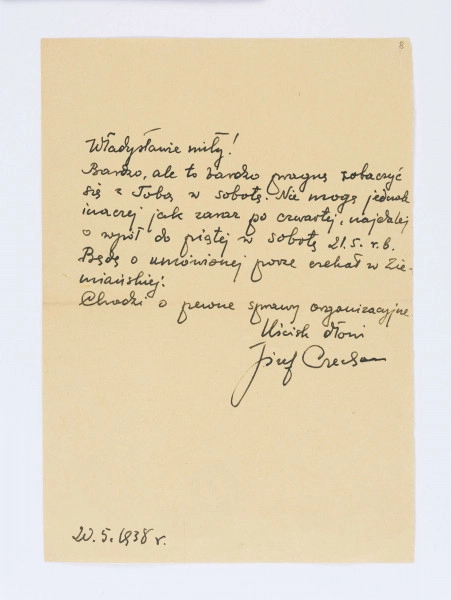 8
Władysławie miły!
Bardzo, ale to bardzo pragnę zobaczyć
się z Tobą w sobotę. Nie mogę jednak
inaczej jak zaraz po czwartej, najdalej
o wpół do piątej w sobotę 21.5. r.b.
Będę o umówionej porze czekał w Zie-
miańskiej.
Chodzi o pewne sprawy organizacyjne
Uścisk dłoni
Józef Czecho
20.5.1938 r.